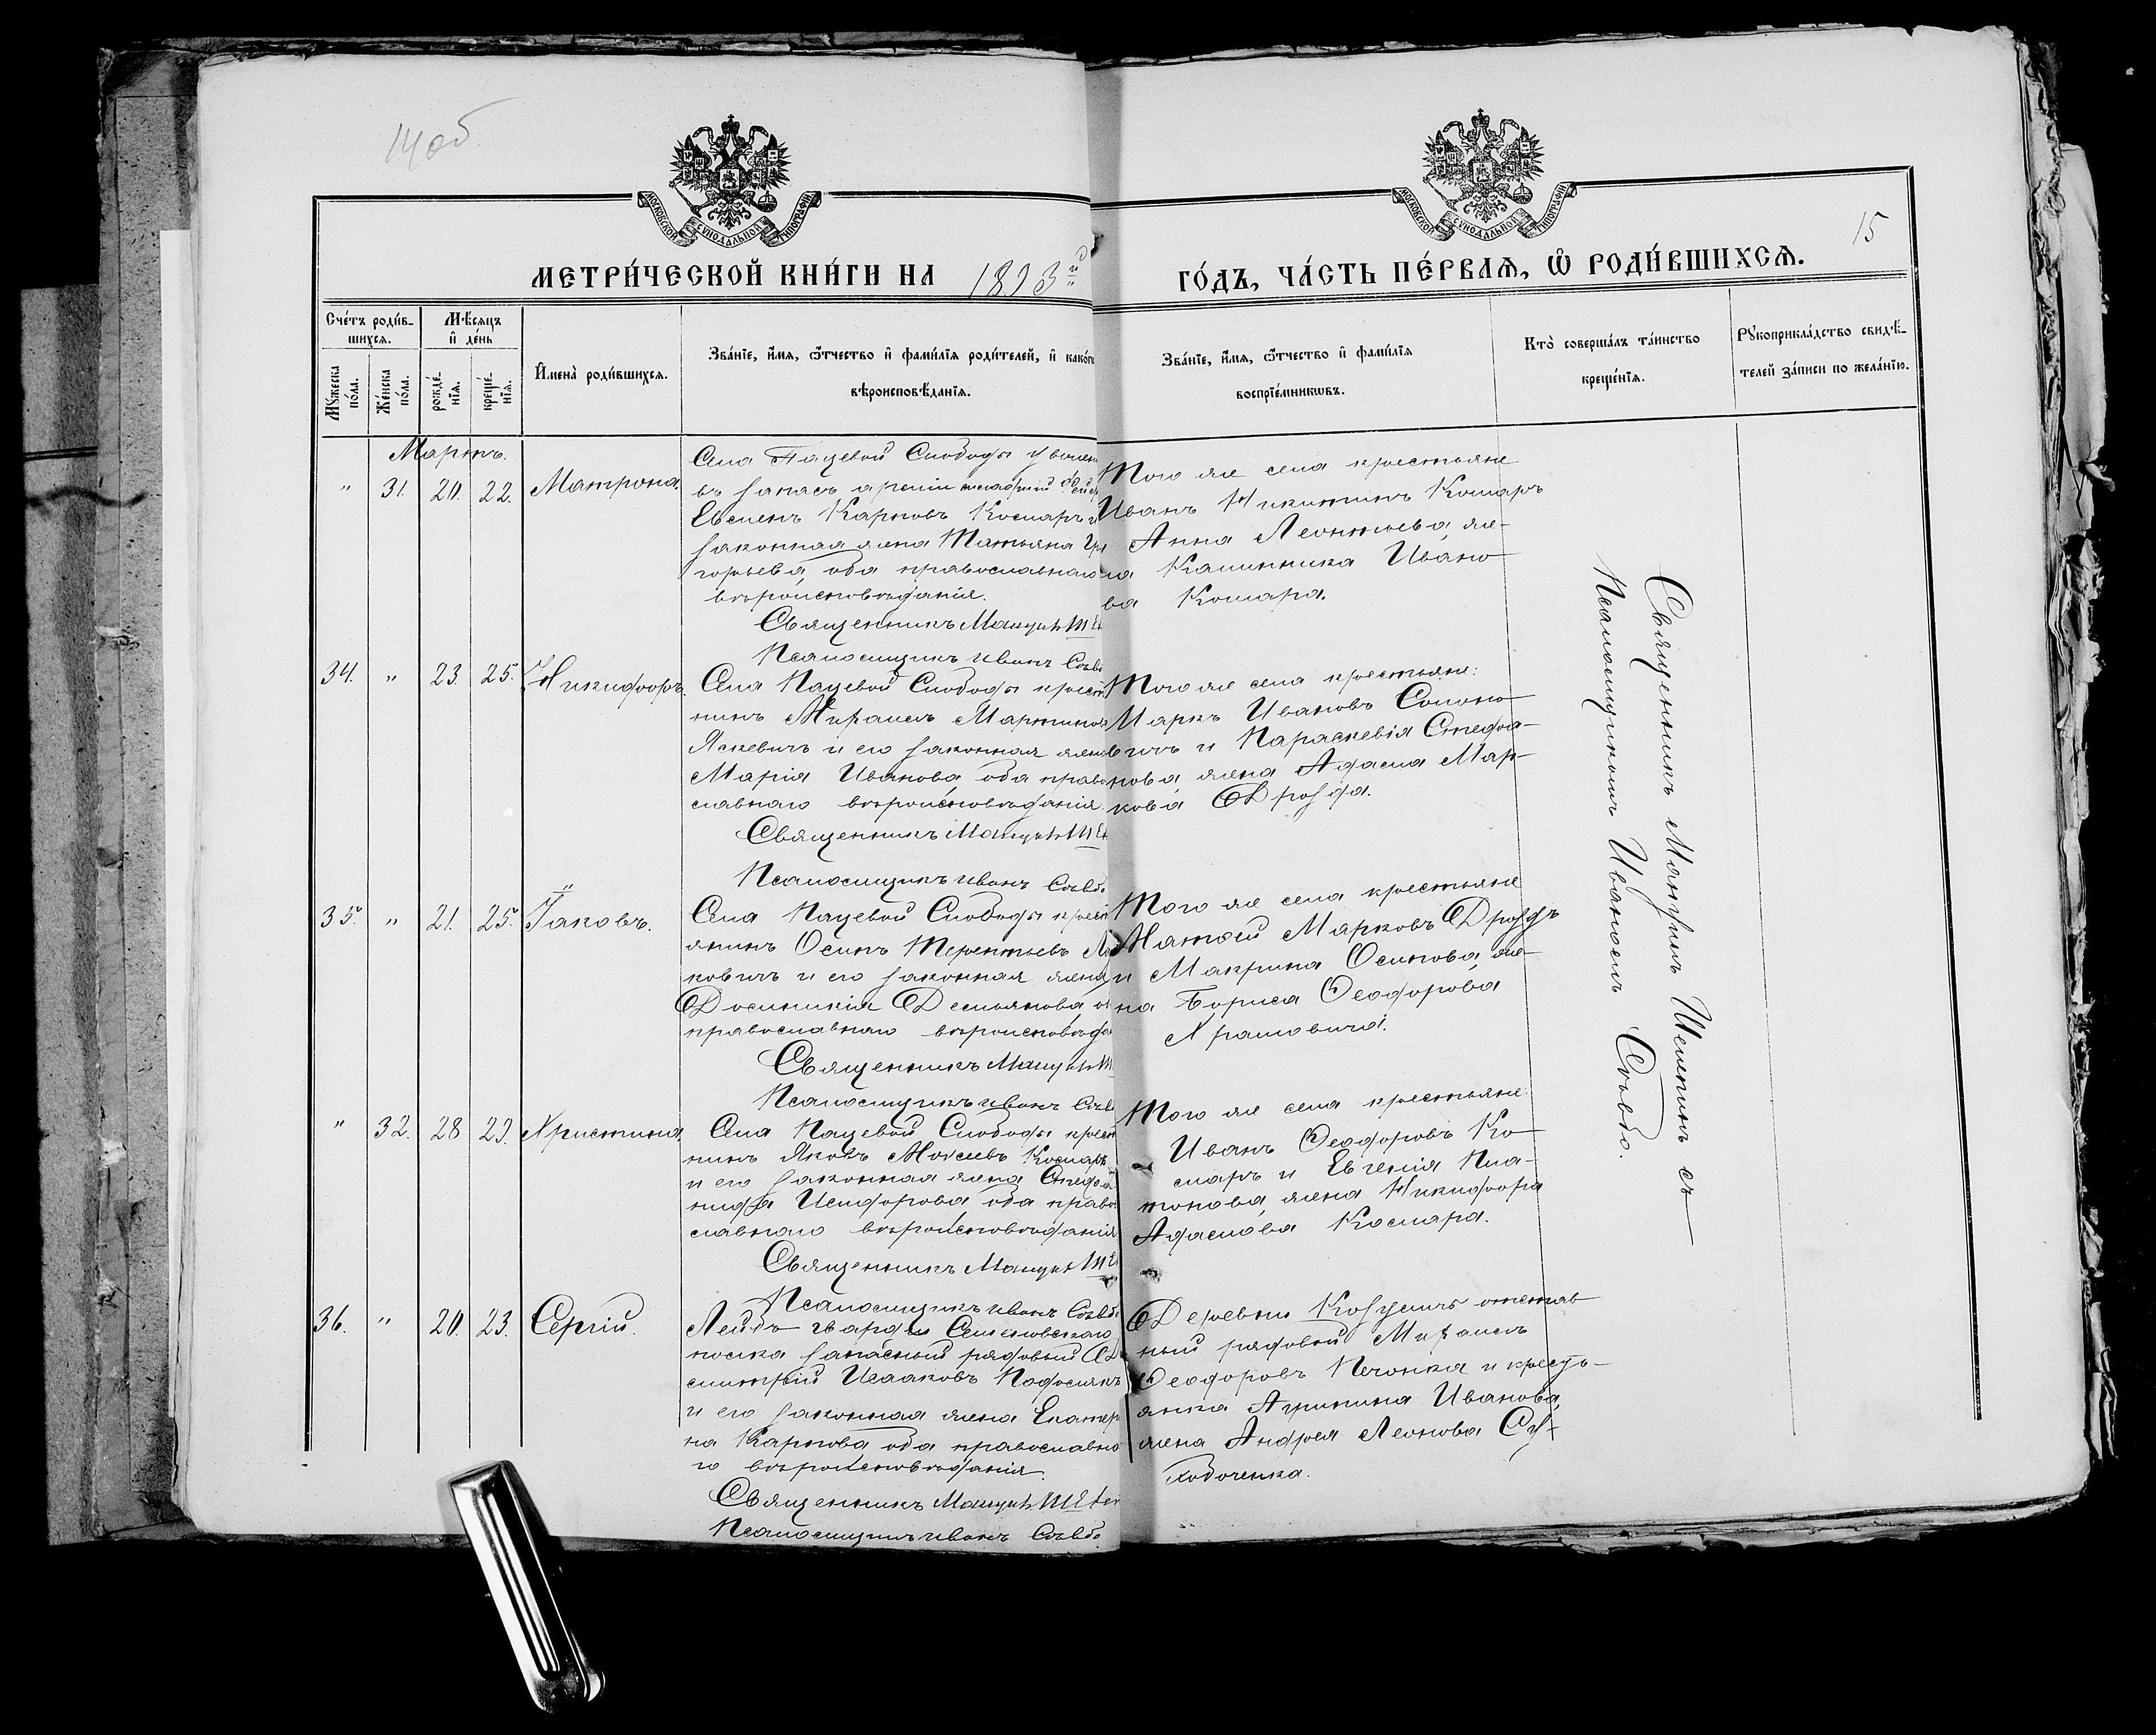 15
МОСКОВСКОЙ СУНОДАЛЬНОЙ ТИПОГРАФІИ
МОСКОВСКОЙ СУНОДАЛЬНОЙ ТИПОГРАФІИ
МЕТРИ́ЧЕСКОЙ КНИ́ГИ НА 1893й
ГО́ДЪ, ЧА́СТЬ ПЕ́РВАѦ, Ѽ РОДИ́ВШИХСѦ.
Счéтъ роди́в-
шихсѧ.
Мѣ́сѧцъ
и҆ де́нь
Мꙋ́жеска по́ла.
Же́нска по́ла.
рожде́-
нїѧ.
креще́-
нїѧ.
И҆мена̀ роди́вшихсѧ.
Зва́нїе, и҆́мѧ, ѻ҆́тчество и҆ фами́лїѧ роди́телей, и҆ како́гѡ
вѣроисповѣ́данїѧ.
Зва́нїе, и҆́мѧ, ѻ҆́тчество и҆ фами́лїѧ
воспрїе́мникѡвъ.
Кто̀ соверша́лъ та́инство
креще́нїѧ.
Рꙋкоприкла́дство свидѣ́-
телей за́писи по жела́нїю.
Мартъ.
" 31. 20. 22. Матрона.
Села Пацевой Слободы уволен
въ запасъ арміи младшій
Евсменъ Карповъ Комаръ и
законная жена Татьяна Гри
горьева, оба православнаго
вѣроисповѣданія.
Священникъ Мануилъ
Псаломщикъ Иванъ
Того же села крестьяне
Иванъ Никитинъ Комаръ
Анна Леонтьева, же-
на Калинника Ивано-
ва Комара.
34. " 23. 25. Никифоръ.
Села Пацевой Слободы крест
нинъ Михаилъ Мартиновъ
Яскевичъ и его законная жена
Марія Иванова, оба право
славнаго вѣроисповѣданія.
Священникъ Мануилъ
Псаломщикъ Иванъ
Того же села крестьяне:
Маркъ Ивановъ Соломо-
вичъ и Параскевія Стефа-
нова, жена Адама Мар-
кова Дрозда.
35. " 21. 25. Іаковъ.
Села Пацевой Слободы крест
янинъ Осипъ Терентьевъ
ковичъ и его законная жена
Домникія Демьянова, об
православнаго вѣроисповѣда
Священникъ Мануилъ
Псаломщикъ Иванъ
Того же села крестьяне
Матѳей Марковъ Дроздъ
и Макрина Осипова, же-
на Бориса Ѳеодорова
Храмовича.
" 32. 28 29. Христина.
Села Пацевой Слободы крест
нинъ Яковъ Моисеевъ Комаръ
и его законная жена Стефа
нида Исидорова, оба право
славнаго вѣроисповѣданія
Священникъ Мануилъ
Псаломщикъ Иванъ
Того же села крестьяне:
Иванъ Ѳеодоровъ Ко-
маръ и Евгенія Пла-
тонова, жена Никифора
Адамова Комара.
36. " 20. 23. Сергій.
Лейбъ гвардіи Семеновскаго
полка запасный рядовый Ди
митрій Исааковъ Подомякъ
и его законная жена Екатери
на Карпова оба православна
го вѣроисповѣданія.
Священникъ Мануилъ
Псаломщикъ Иванъ
Деревни Козуличъ отстав-
ный рядовый Михаилъ
Ѳеодоровъ Печонка и кресть-
янка Агрипина Иванова,
жена Андрея Леонова Су-
ходоченка.
Священникъ Мануилъ съ
Псаломщикомъ Иваномъ